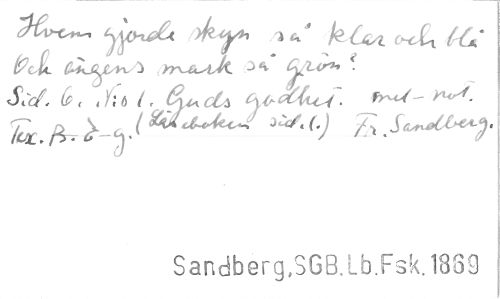 Hvem gjorde skyn så klar och blå
Och ängens mark så grön?
Sid. 6. N:o 1. Guds godhet. mel-not.
Tex. B-d-g. (Läseboken sid. 1.) Fr. Sandberg.
Sandberg,SGB.Lb.Fsk.1869